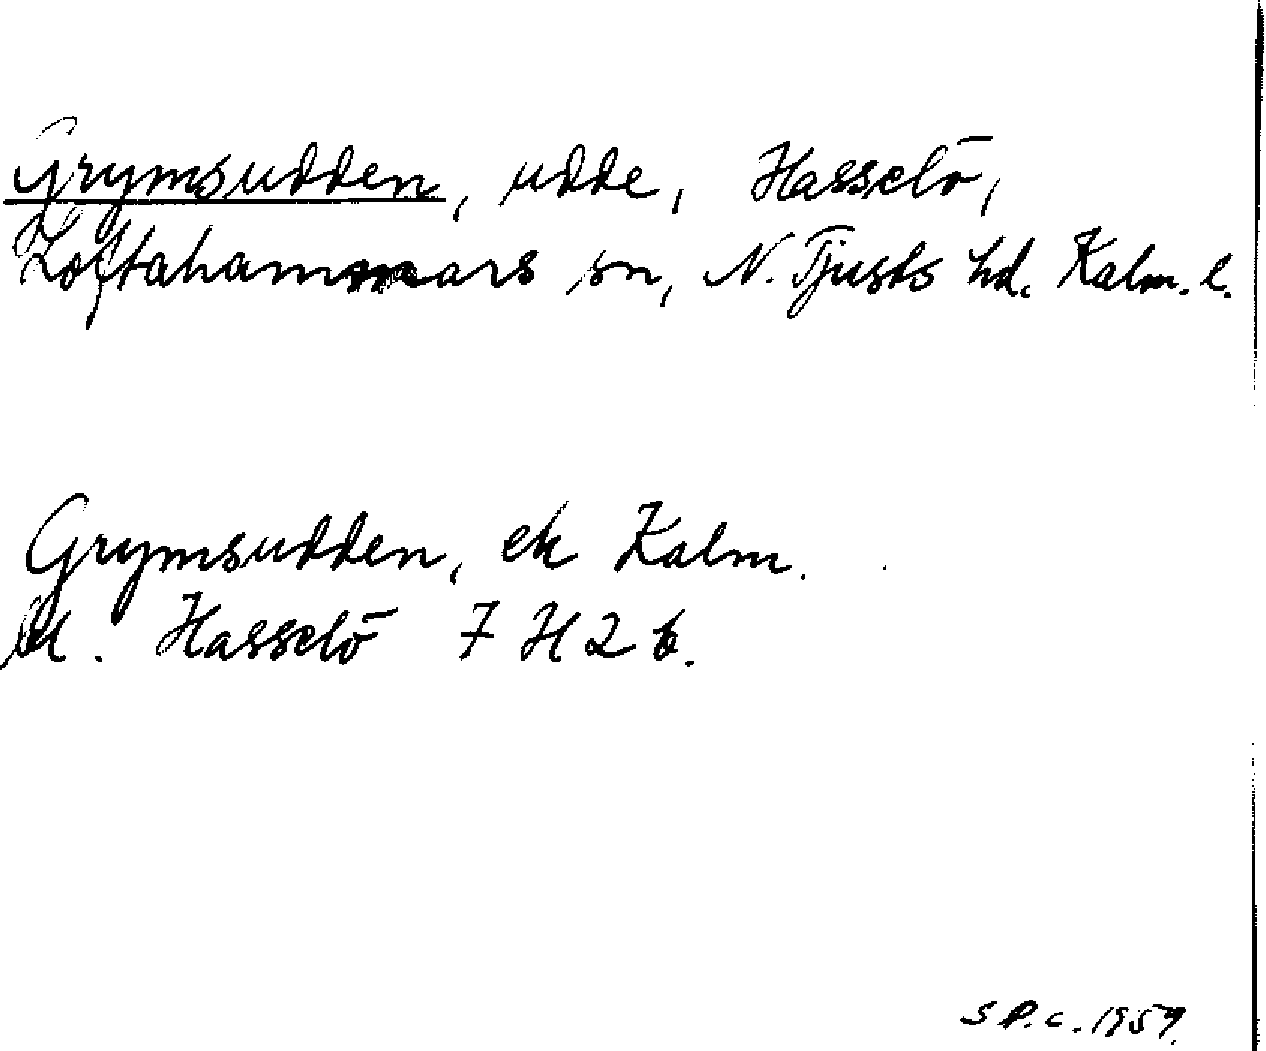 Grymsudden, udde, Hasselö,
Loftahammars sn, N. Tjusts hd. Kalm. l.
Grymsudden, ek Kalm.
l. Hasselö 7 H 2 b.
S P. c. 1959.